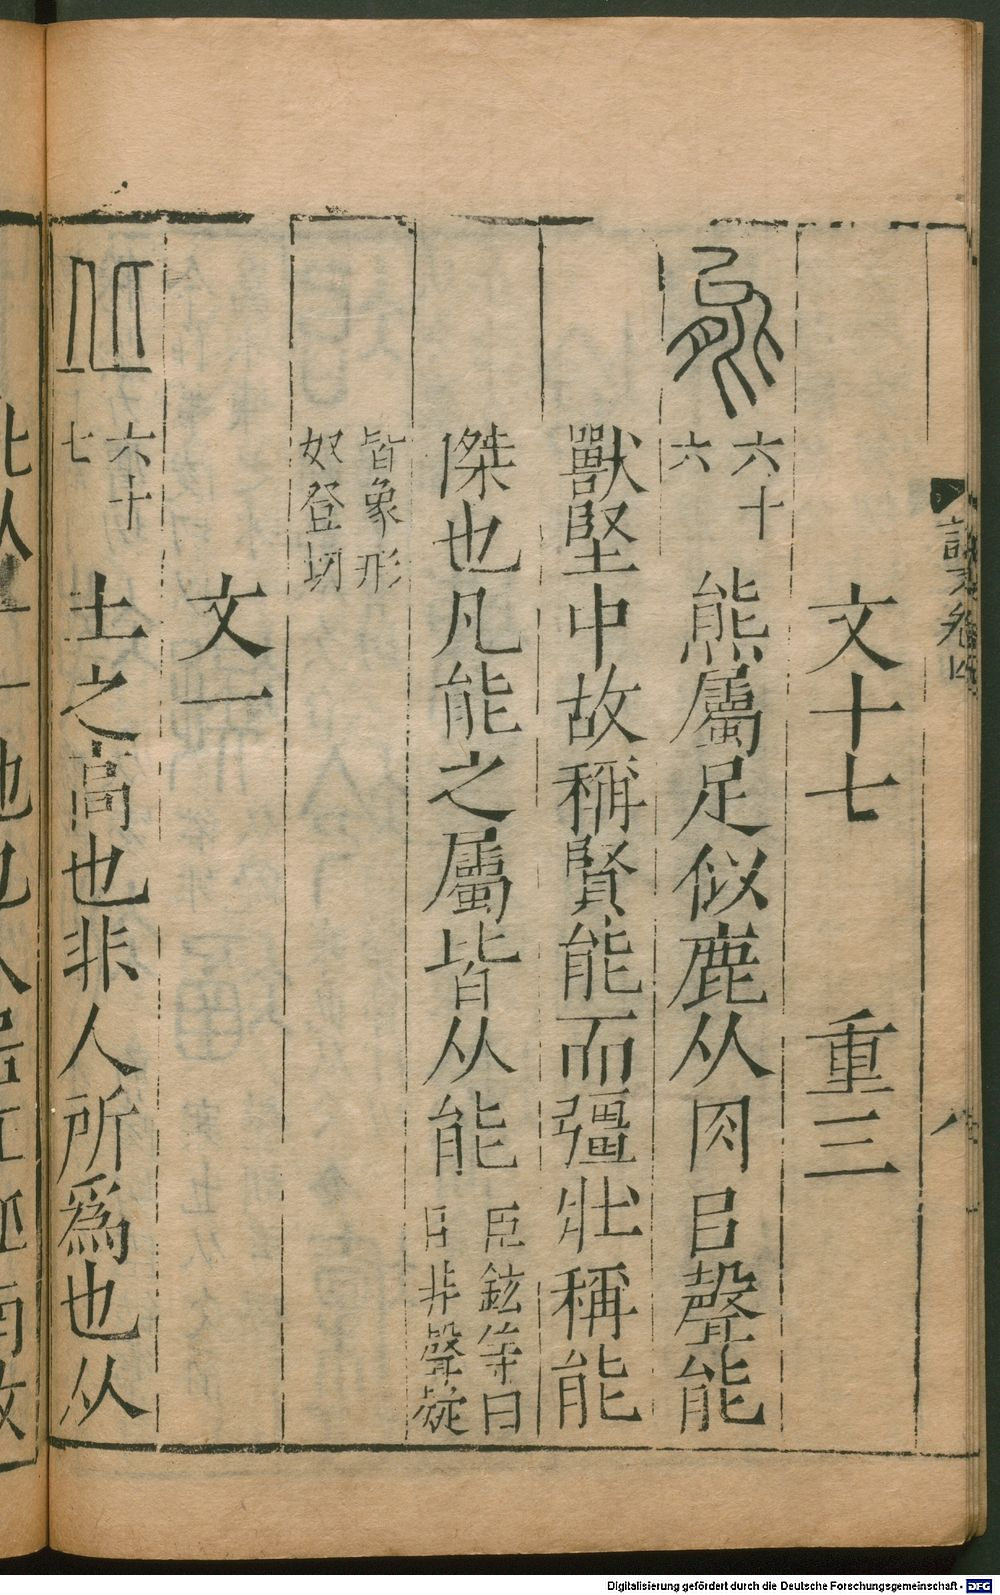 文十七　重三
能
六十六
熊屬足似鹿从肉㠯聲能
獸堅中故稱賢能而彊壯稱能
傑也凡能之屬皆从能
臣鉉等曰
㠯非聲疑
皆象形
奴登切
文一
丘
六十七
土之高也非人所爲也从
Digitalisierung gefördert durch die Deutsche Forschungsgemeinschaft - DFG